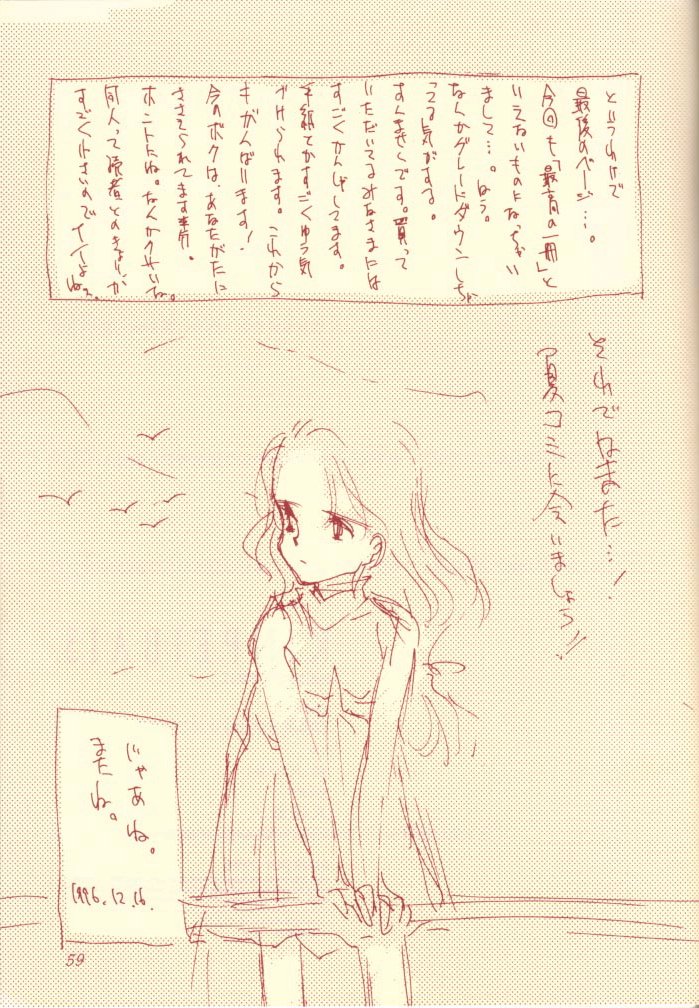 というわけで
最後のページ…。
今回も「最高の一冊」と
いえないものになっちゃい
まして…。はう。
なんかグレードダウンしちゃ
ってる気がするる。
すんませんです。買って
いただいてるみなさまには
すごくかんしゃしてます。
手紙でかすごくゆう気
づけられます。これから
もがんばります！
今のボクは、あなたがたに
ささえられてます号。
ホントだね。なんかクサいな。
同人って読者とのきょりが
すごく小さいのでイイよねェ。
それではまた…！
夏コミに会いましょう!!
じゃあね。
またね。
1996.12.16.
59